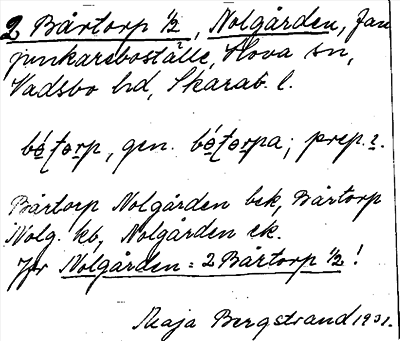 2 Bårtorp 1/2, Nolgården, Fan
junkareboställe, Hova sn,
Vadsbo hd, Skarab. l.
bó̲ţo̲rp, gen. bó̲ţo̲rpa; prep. i.
Bårtorp Nolgården bek, Bårtorp
Nolg. kb, Nolgården ek.
Jfr Nolgården = 2 Bårtorp 1/2!
Maja Bergstrand 1931.